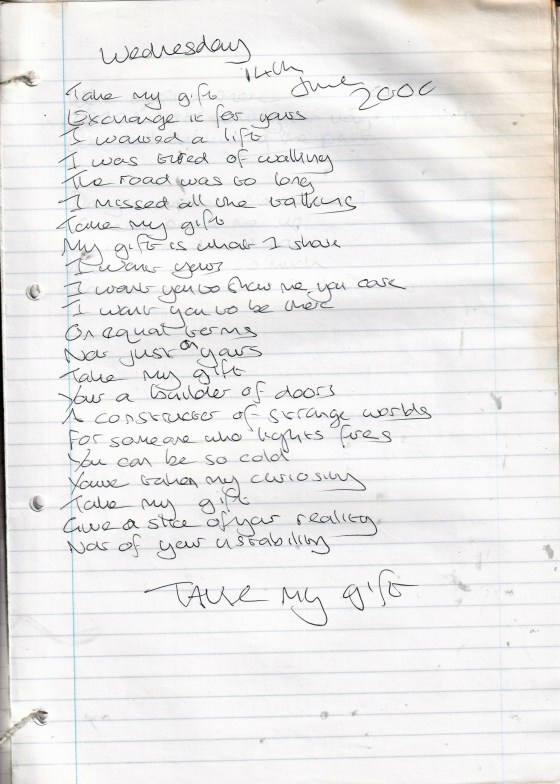 Wednesday
14th
June 2000
Take my gift
Exchange it for yours
I wanted a lift
I was tired of walking
The road was to long
I missed all the talking
Take my gift
My gift is what I share
I want yours
I want you to show me you care
I want you to be there
On equal terms
Not just on yours
Take my gift
Your a builder of doors
A constructer of strange worlds
For someone who lights fires
You can be so cold
Youve taken my curiosity
Take my gift
Give a slice of your reality
Not of your
TAKE MY gift